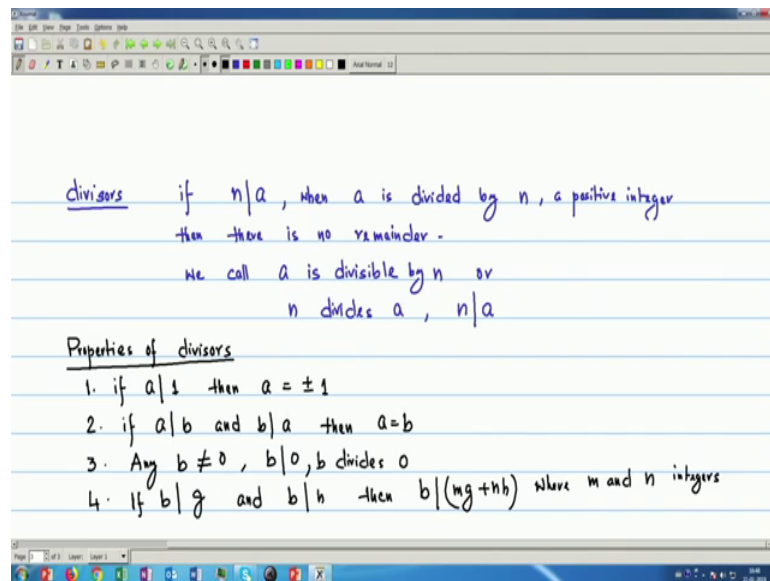 Journal
File Edit View Page Tools Options Help
Arial Normal 12
divisors if n|a, when a is divided by n, a positive integer
then there is no remainder.
We call a is divisible by n or
n divides a, n|a
Properties of divisors
1. if a|1 then a = ±1
2. if a|b and b|a then a=b
3. Any b ≠ 0, b|0, b divides 0
4. If b|g and b|h then b|(mg+nh) where m and n integers
Page 3 of 3 Layer: Layer 1